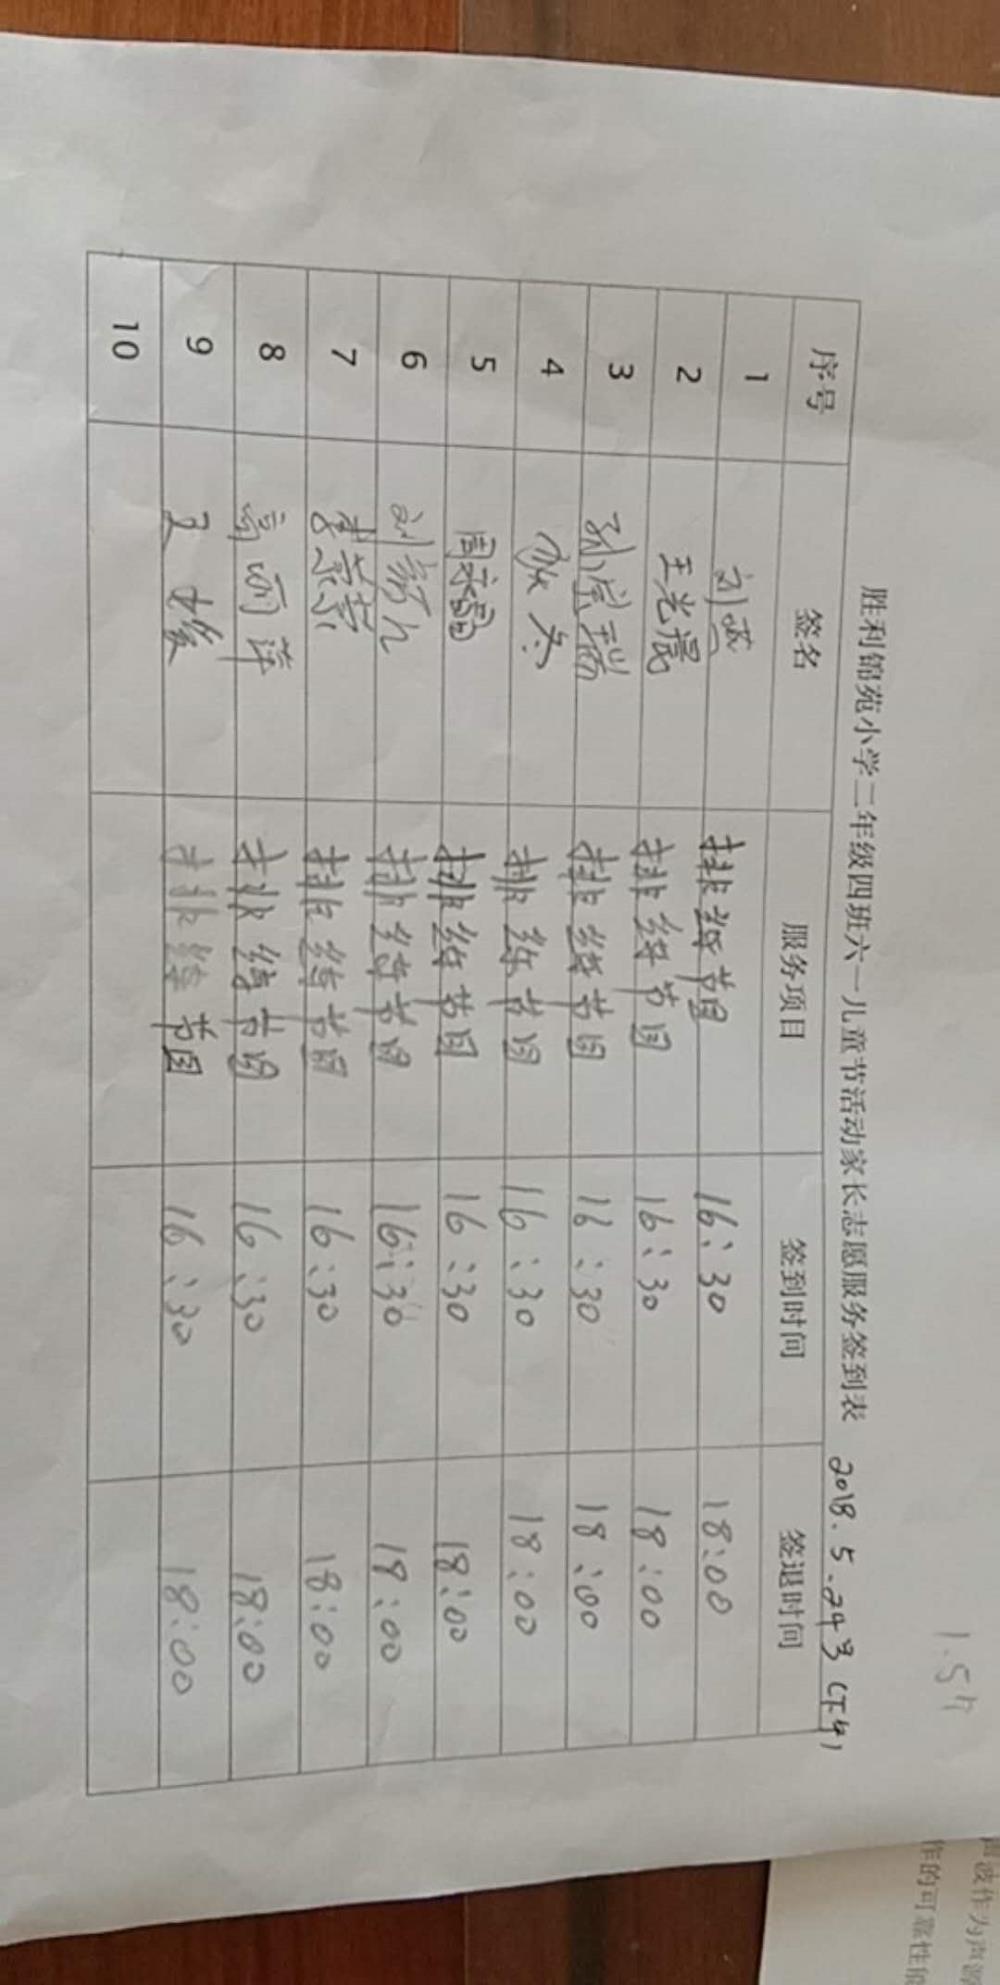 1.5h
胜利锦苑小学二年级四班六一儿童节活动家长志愿服务签到表 2018.5.24号(下午)
序号 签名 服务项目 签到时间 签退时间
1 排练节目 16:30 18:00
2 王光晨 排练节目 16:30 18:00
3 排练节目 16:30 18:00
4 排练节目 16:30 18:00
5 排练节目 16:30 18:00
6 排练节目 16:30 18:00
7 排练节目 16:30 18:00
8 高丽萍 排练节目 16:30 18:00
9 排练节目 16:30 18:00
10
波作为声源
作的可靠性